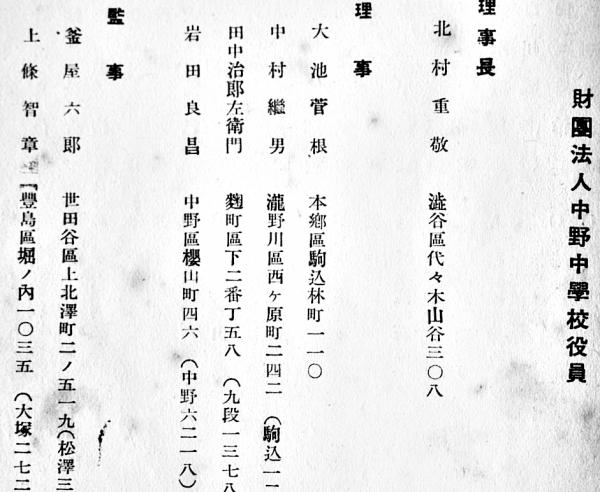 財團法人中野中學校役員
理事長
北村重敬 澁谷區代々木山谷三〇八
理事
大池菅根 本鄕區駒込林町一一〇
中村繼男 瀧野川區西ヶ原町二四二 (駒込一一
田中治郎左衞門 麴町區下二番丁五八 (九段一三七八
岩田良昌 中野區櫻山町四六 (中野六二一八)
監事
釜屋六郞 世田谷區上北澤町二ノ五一九(松澤三
上條智章 豐島區堀ノ內一〇三五 (大塚二七二